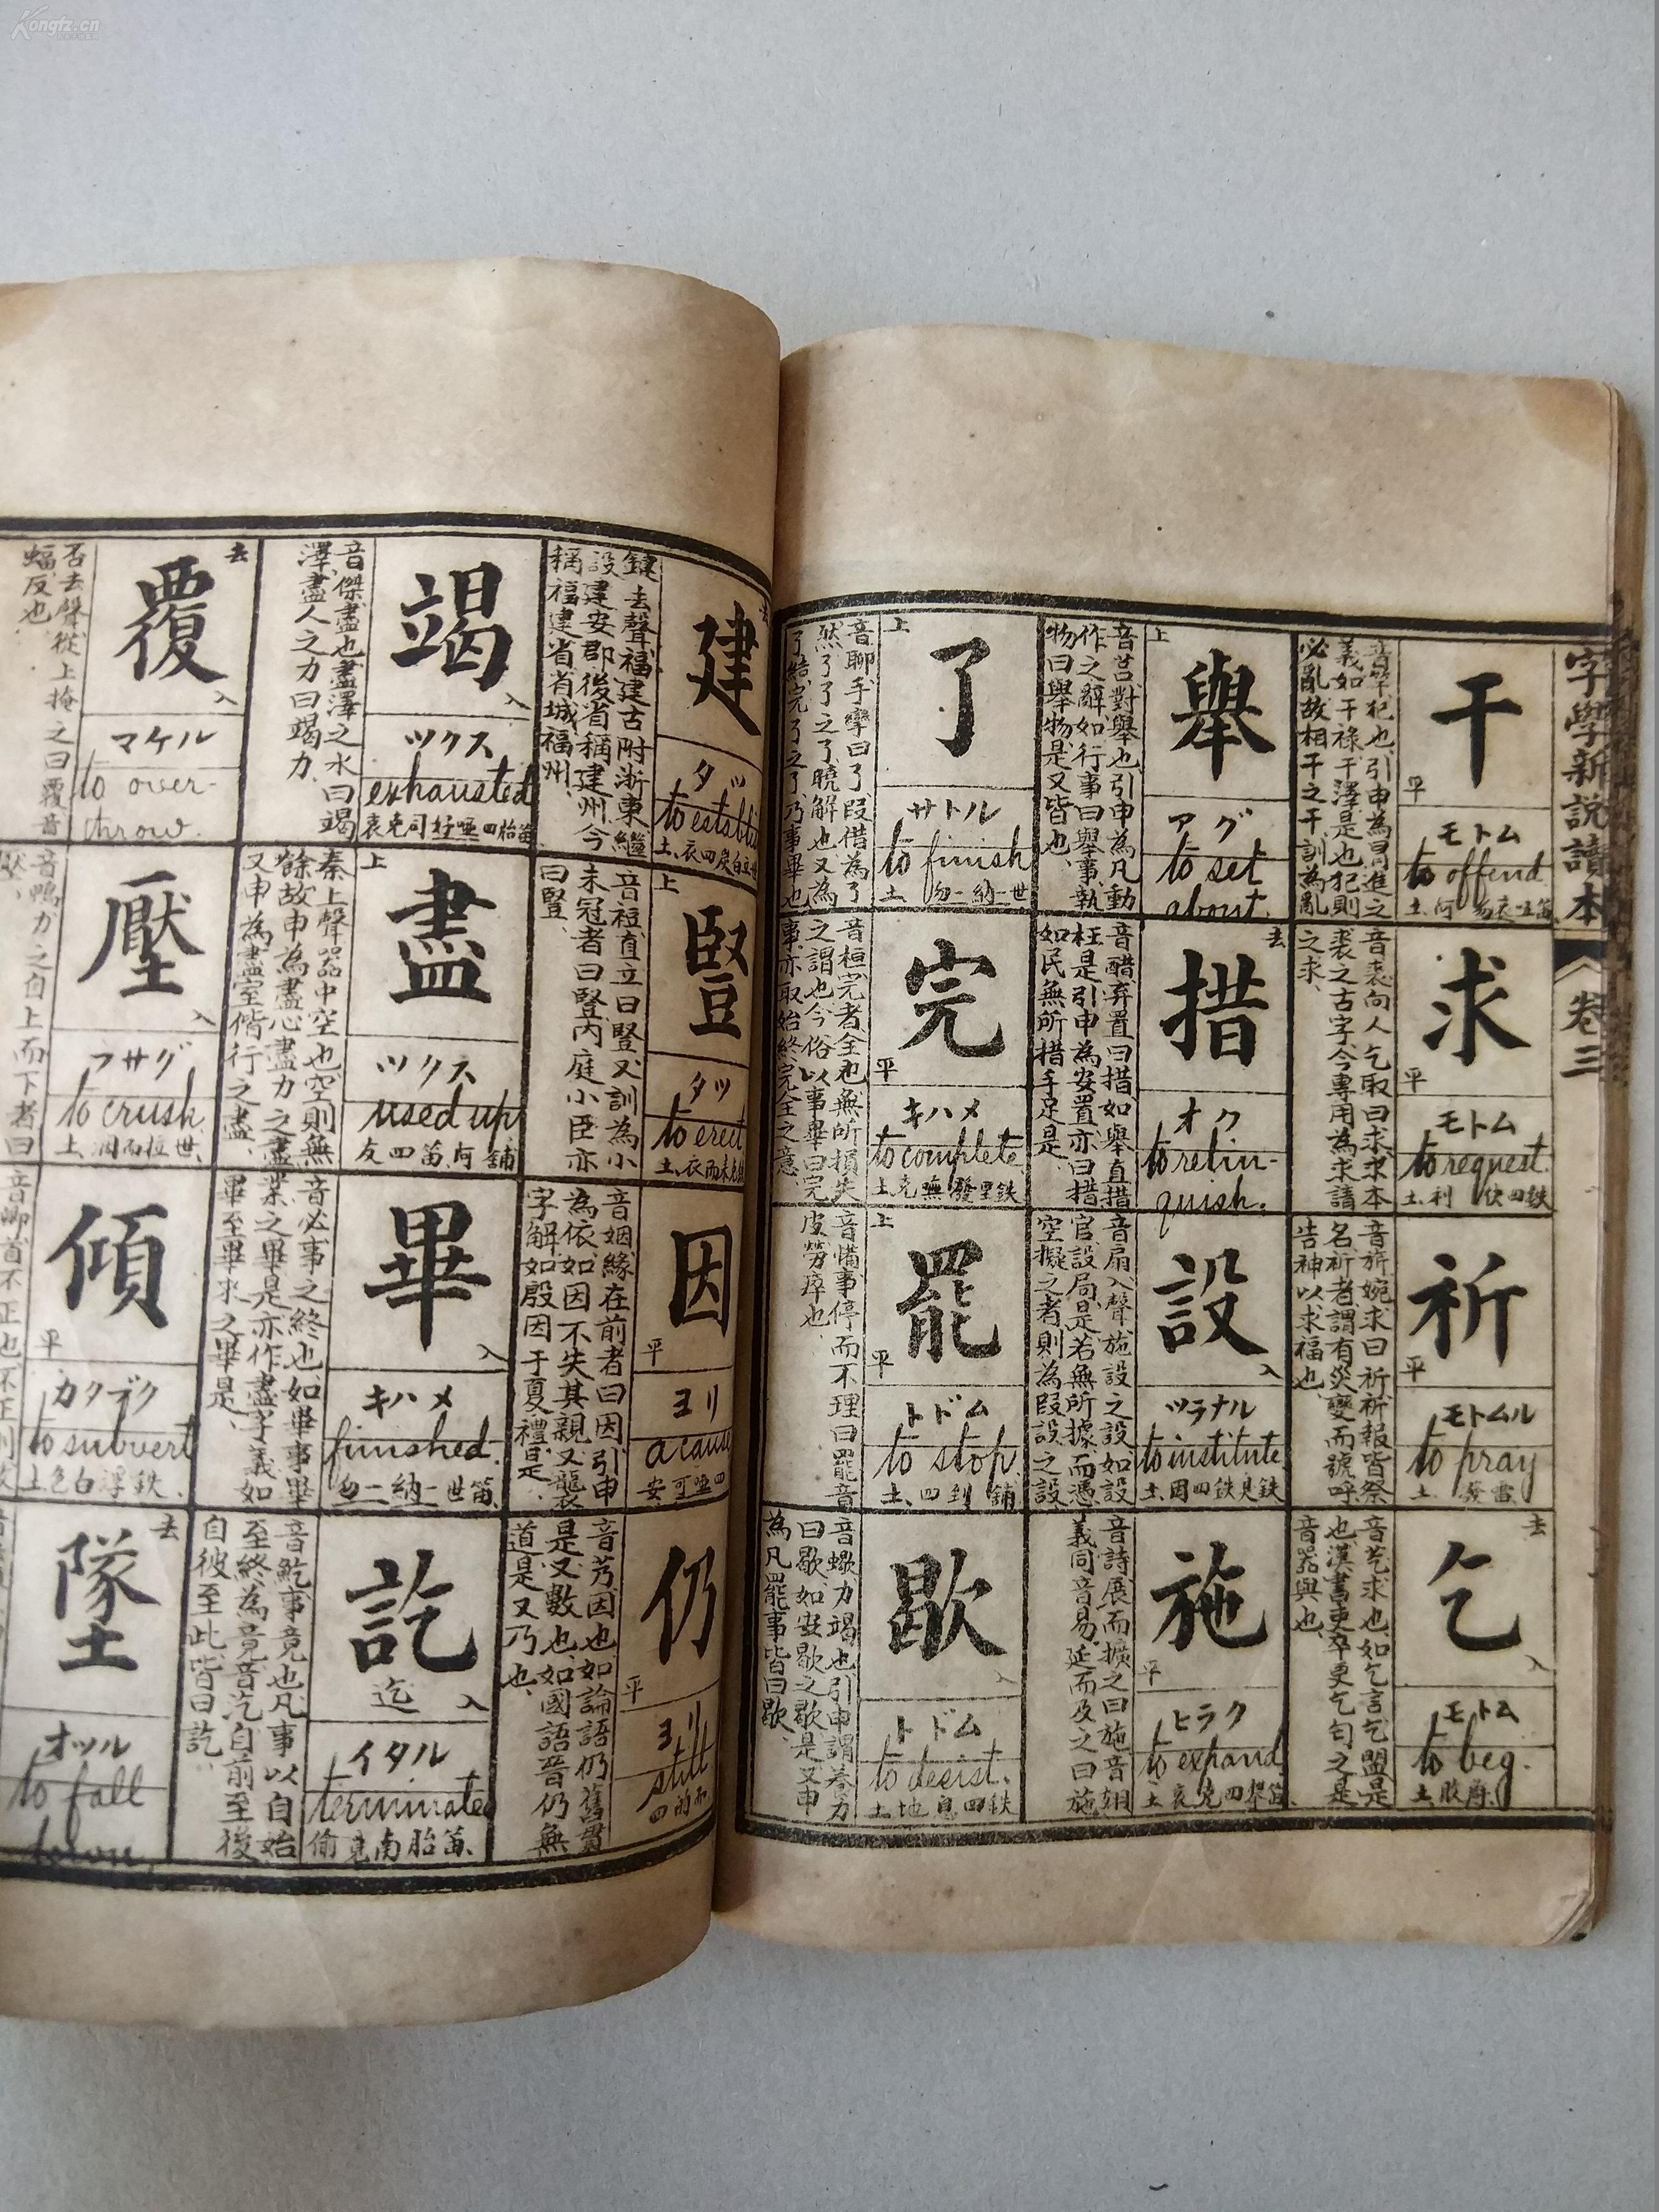 Kongfz.cn
字學新說讀本
卷三
干
平
モトム
to offend
求
平
モトム
to request.
音裘向人乞取曰求求本
裘之古字今專用為求請
之求
祈
平
モトムル
to pray
音旂婉求曰祈祈報皆祭
名祈者謂有災變而號呼
告神以求福也
乞
去
入
モトム
to beg.
舉
上
アグ
to set
about.
音莒對舉也引申為凡動
作之辭如行事曰舉事執
物曰舉物是又皆也
措
去
オク
to relin-
quish.
音醋弃置曰措如舉直措
枉是引申為安置亦曰措
如民無所措手足是
設
入
ツラナル
to institute
音扇入聲施設之設如設
官設局是若無所據而憑
空擬之者則為叚設之設
施
平
ヒラク
to expand
音詩展而擴之曰施音翅
義同音易延而及之曰施
了
上
サトル
to finish
音聊手攣曰了叚借為了
然了了之了曉解也又為
了結完了之了乃事畢也
完
平
キハメ
to complete
音桓完者全也無所損失
之謂也今俗以事畢曰完
事亦取始終完全之意
罷
上
平
トドム
to stop.
音備事停而不理曰罷音
皮勞瘁也
歇
入
トドム
to desist.
音蠍力竭也引申謂養力
曰歇如安歇之歇是又申
為凡罷事皆曰歇
建
去
タツ
鍵去聲福建古附浙東繼
設建安郡後省稱建州今
稱福建省省城福州
豎
上
タツ
to erect
音裋直立曰豎又訓為小
未冠者曰豎內庭小臣亦
曰豎
因
平
ヨリ
a cause
音姻緣在前者曰因引申
為依如因不失其親又襲
字解如殷因于夏禮是
仍
平
ヨリ
still
音艿因也如論語仍舊貫
是又數也如國語晉仍無
道是又乃也
竭
入
ツクス
exhausted
音傑盡也盡澤之水曰竭
澤盡人之力曰竭力
盡
上
ツクス
used up
秦上聲器中空也空則無
餘故申為盡心盡力之盡
又申為盡室偕行之盡
畢
入
キハメ
finished.
音必事之終也如畢事畢
業之畢是亦作盡字義如
畢至畢求之畢是
訖
迄
入
イタル
terminated
音釳事竟也凡事以自始
至終為竟音汔自前至後
自彼至此皆曰訖
覆
去
入
マケル
to over-
throw.
否去聲從上掩之曰覆音
蝠反也
壓
入
フサグ
to crush
音鴨力之自上而下者曰
傾
平
カタブク
to subvert
隊
去
オツル
to fall
down.